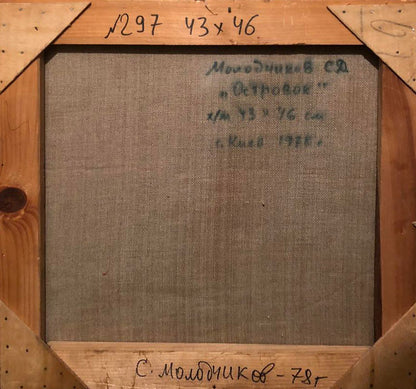 №297 43×46
Молодчиков СД
„Островок"
х/м 43×46 см
г. Киев 1978 г
С. Молодчиков - 78г